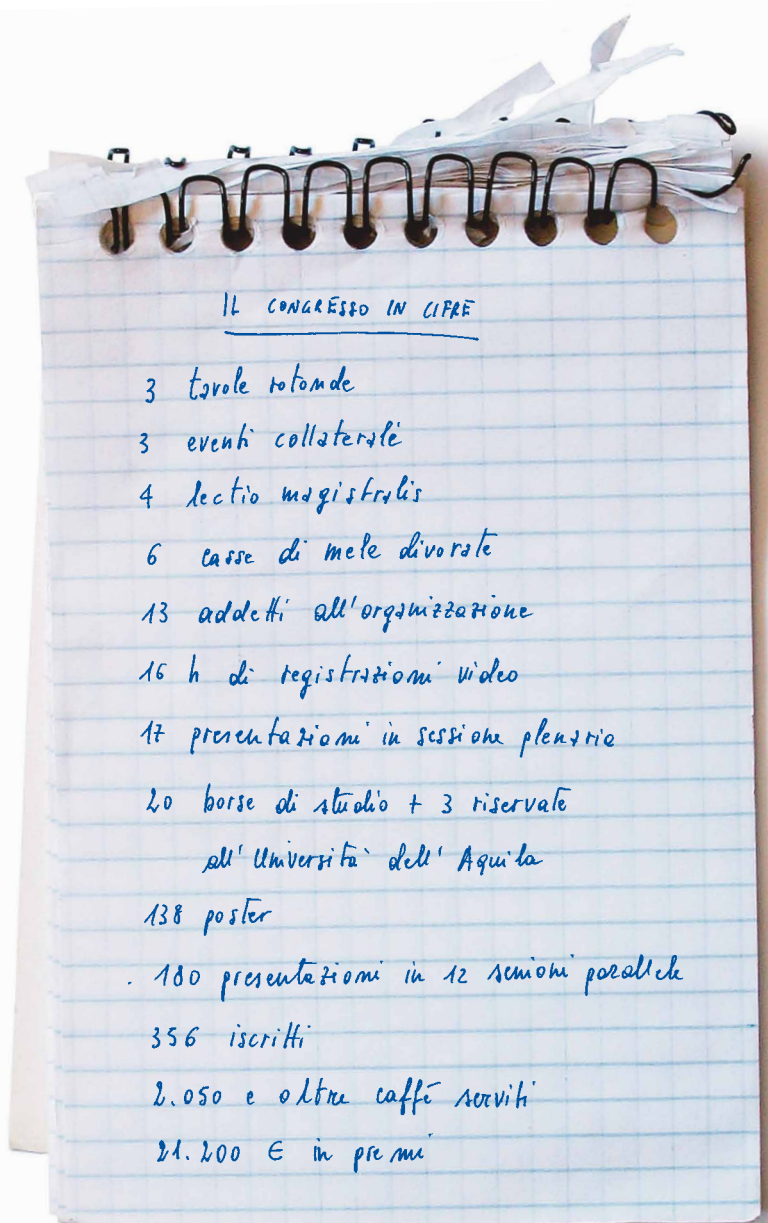 IL CONGRESSO IN CIFRE
3 tavole rotonde
3 eventi collaterali
4 lectio magistralis
6 casse di mele divorate
13 addetti all'organizzazione
16 h di registrazioni video
17 presentazioni in sessione plenaria
20 borse di studio + 3 riservate
all'Università dell'Aquila
138 poster
180 presentazioni in 12 sessioni parallele
356 iscritti
2.050 e oltre caffè serviti
21.200 € in premi